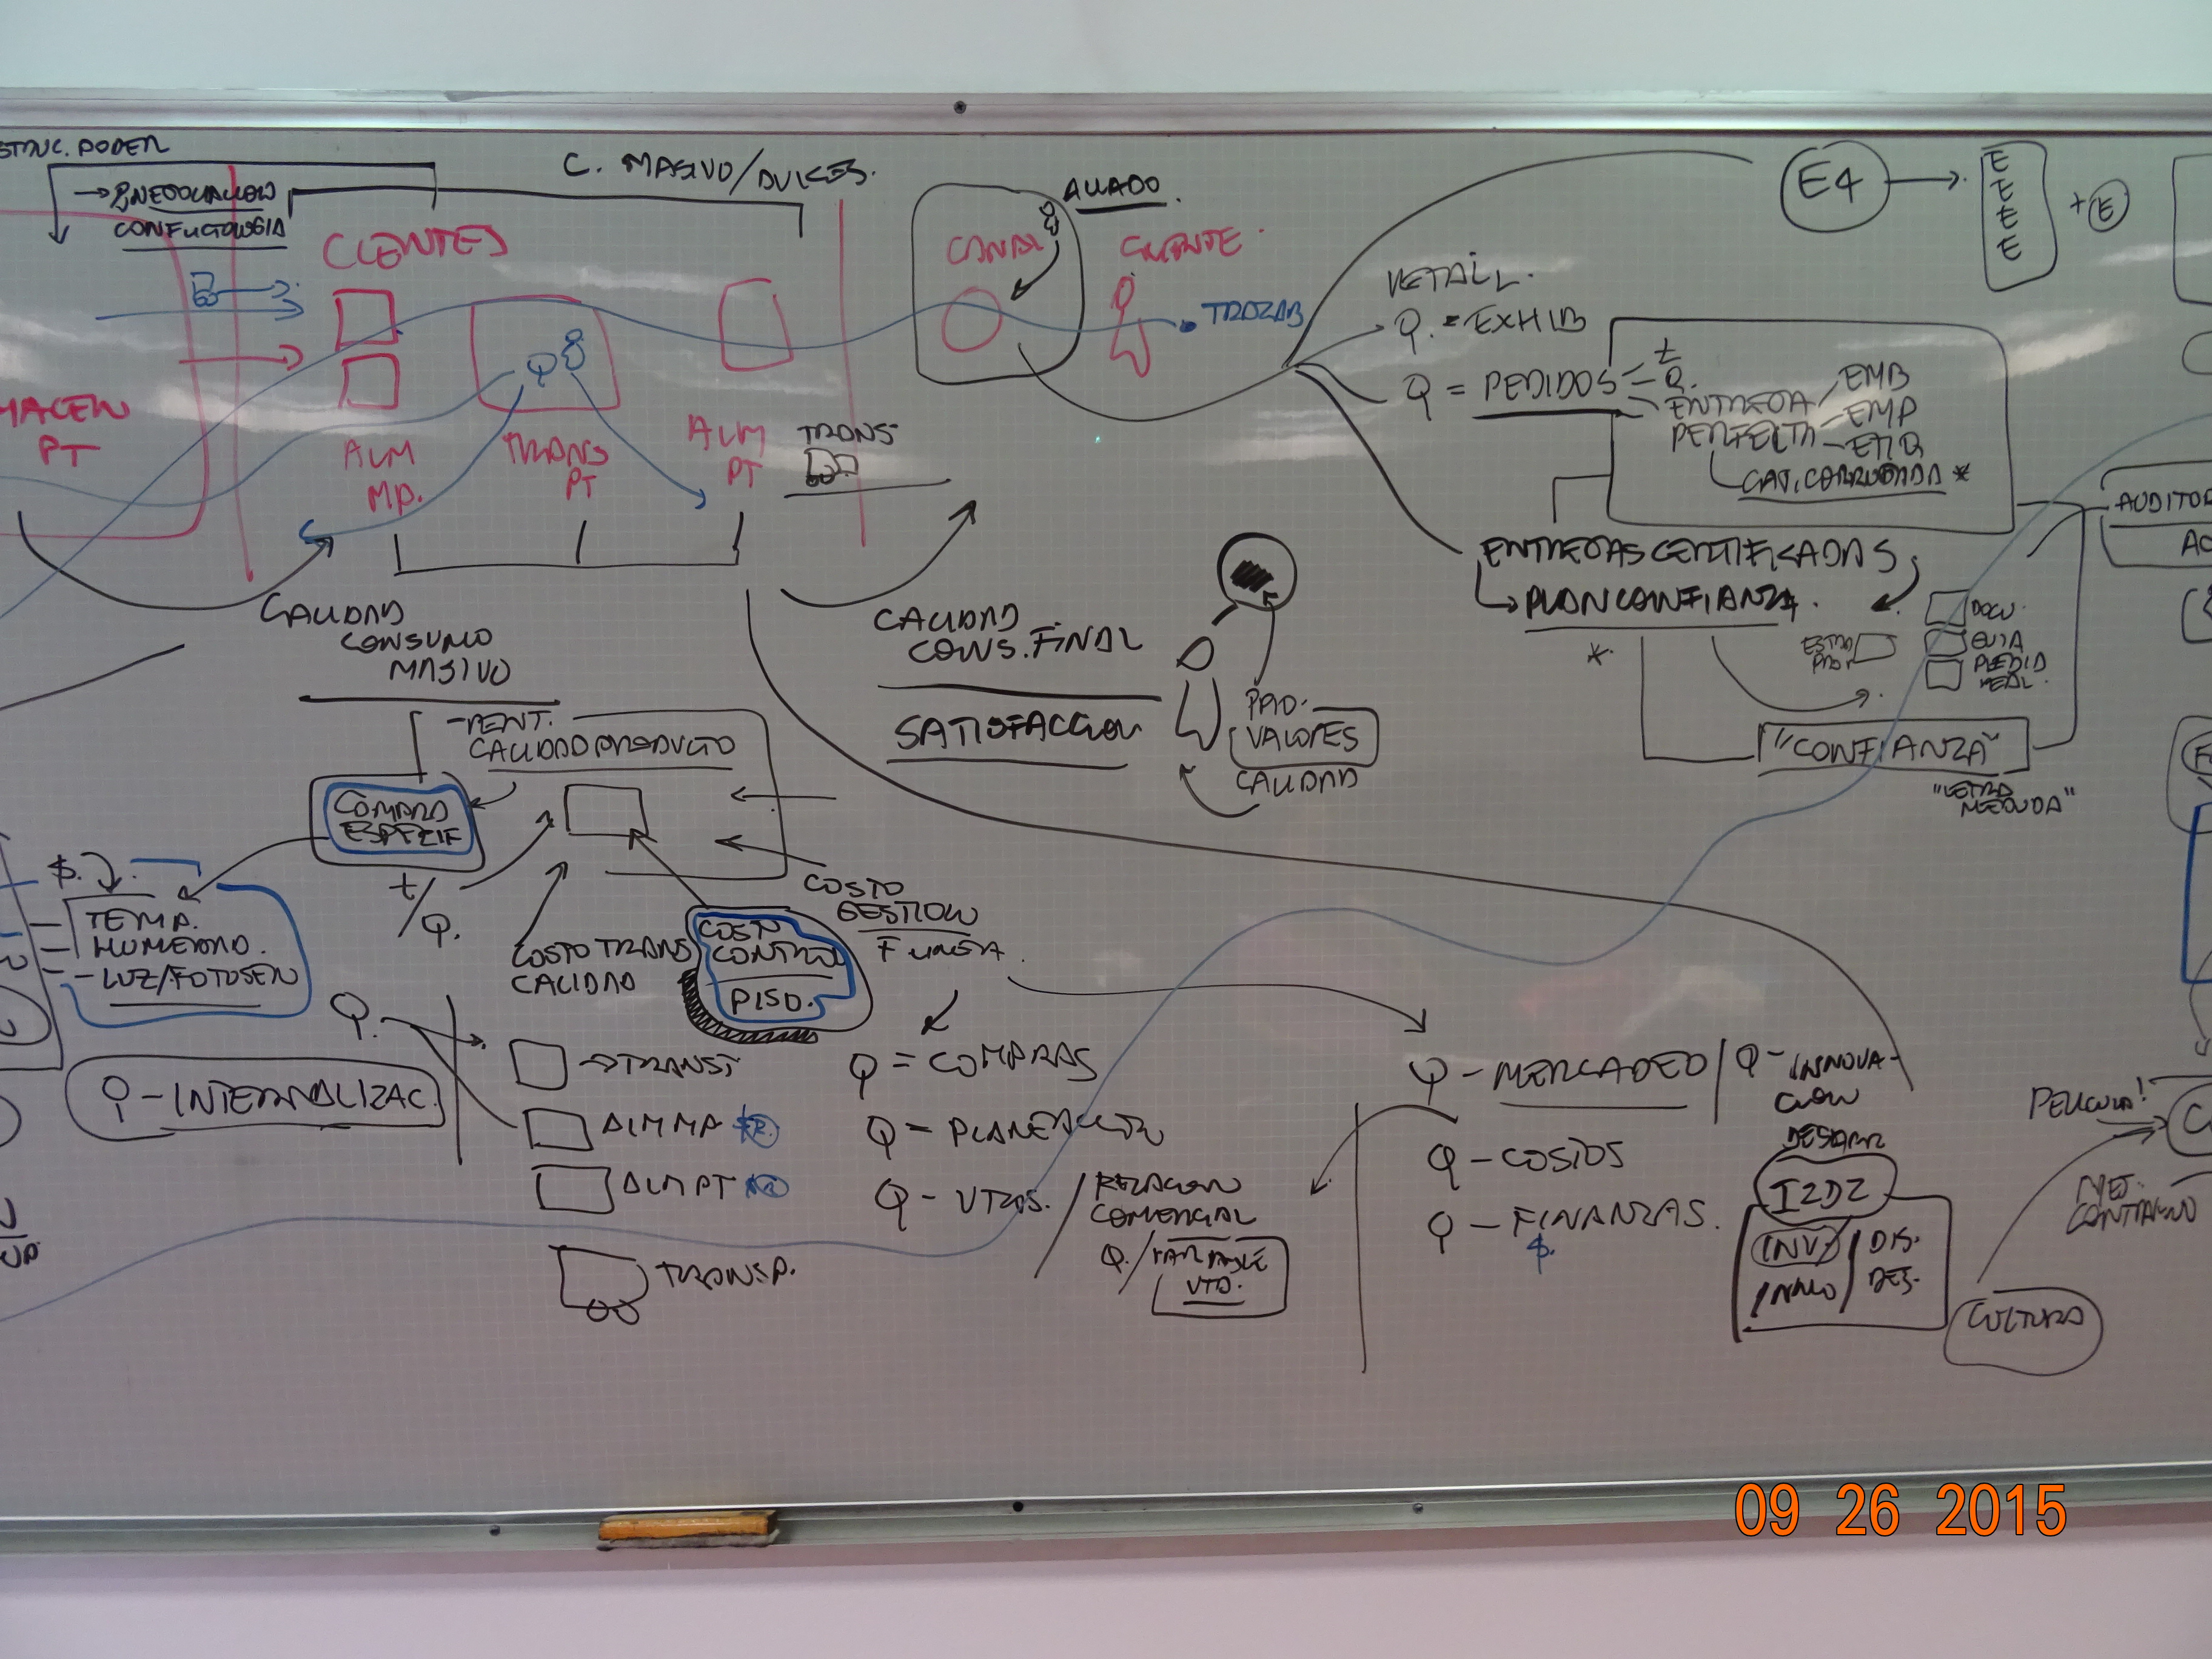 STRUC. PODER
→ P/NEGOCIACION
CONFLICTOLOGIA
C. MASIVO/DULCES.
CLIENTES
ALMACEN
PT
ALM
MP.
Q
TRANS
PT
ALM
PT
TRANS
CANAL
ALIADO.
CLIENTE.
TRAZAB
E4 →
E
E
E
E
+ E
RETAIL.
Q. = EXHIB
Q = PEDIDOS
t
Q.
ENTREGA
PERFECTA
EMB
EMP
ETIQ
CAJ. CORRUGADA *
ENTREGAS CERTIFICADAS
→ PLAN CONFIANZA.
*
DOCU.
GUIA
PEDID
REAL.
"CONFIANZA"
"LETRA
MENUDA"
AUDITOR
AC
CALIDAD
CONSUMO
MASIVO
CALIDAD
CONS. FINAL
SATISFACCION
PROD.
VALORES
CALIDAD
-RENT.
CALIDAD PRODUCTO
COMPRA
ESPECIF
t/Q.
$.
TEMP.
HUMEDAD.
-LUZ/FOTOSEN
COSTO TRANS
CALIDAD
COSTO
CONTROL
PISO.
COSTO
GESTION
FUNCIA.
Q.
Q-INTERNALIZAC.
→TRANSF
ALM MP
ALM PT
TRANSP.
Q = COMPRAS
Q = PLANEACION
Q - VTAS.
RELACION
COMERCIAL
Q./VARIABLE
VTA.
Q - MERCADEO/
Q - INNOVA-
CION
DESARR
Q - COSTOS
Q - FINANZAS.
$.
I2D2
INV/
INNO
DIS.
DES.
PELICULA!
MEJ.
CONTINUO
CULTURA
09 26 2015